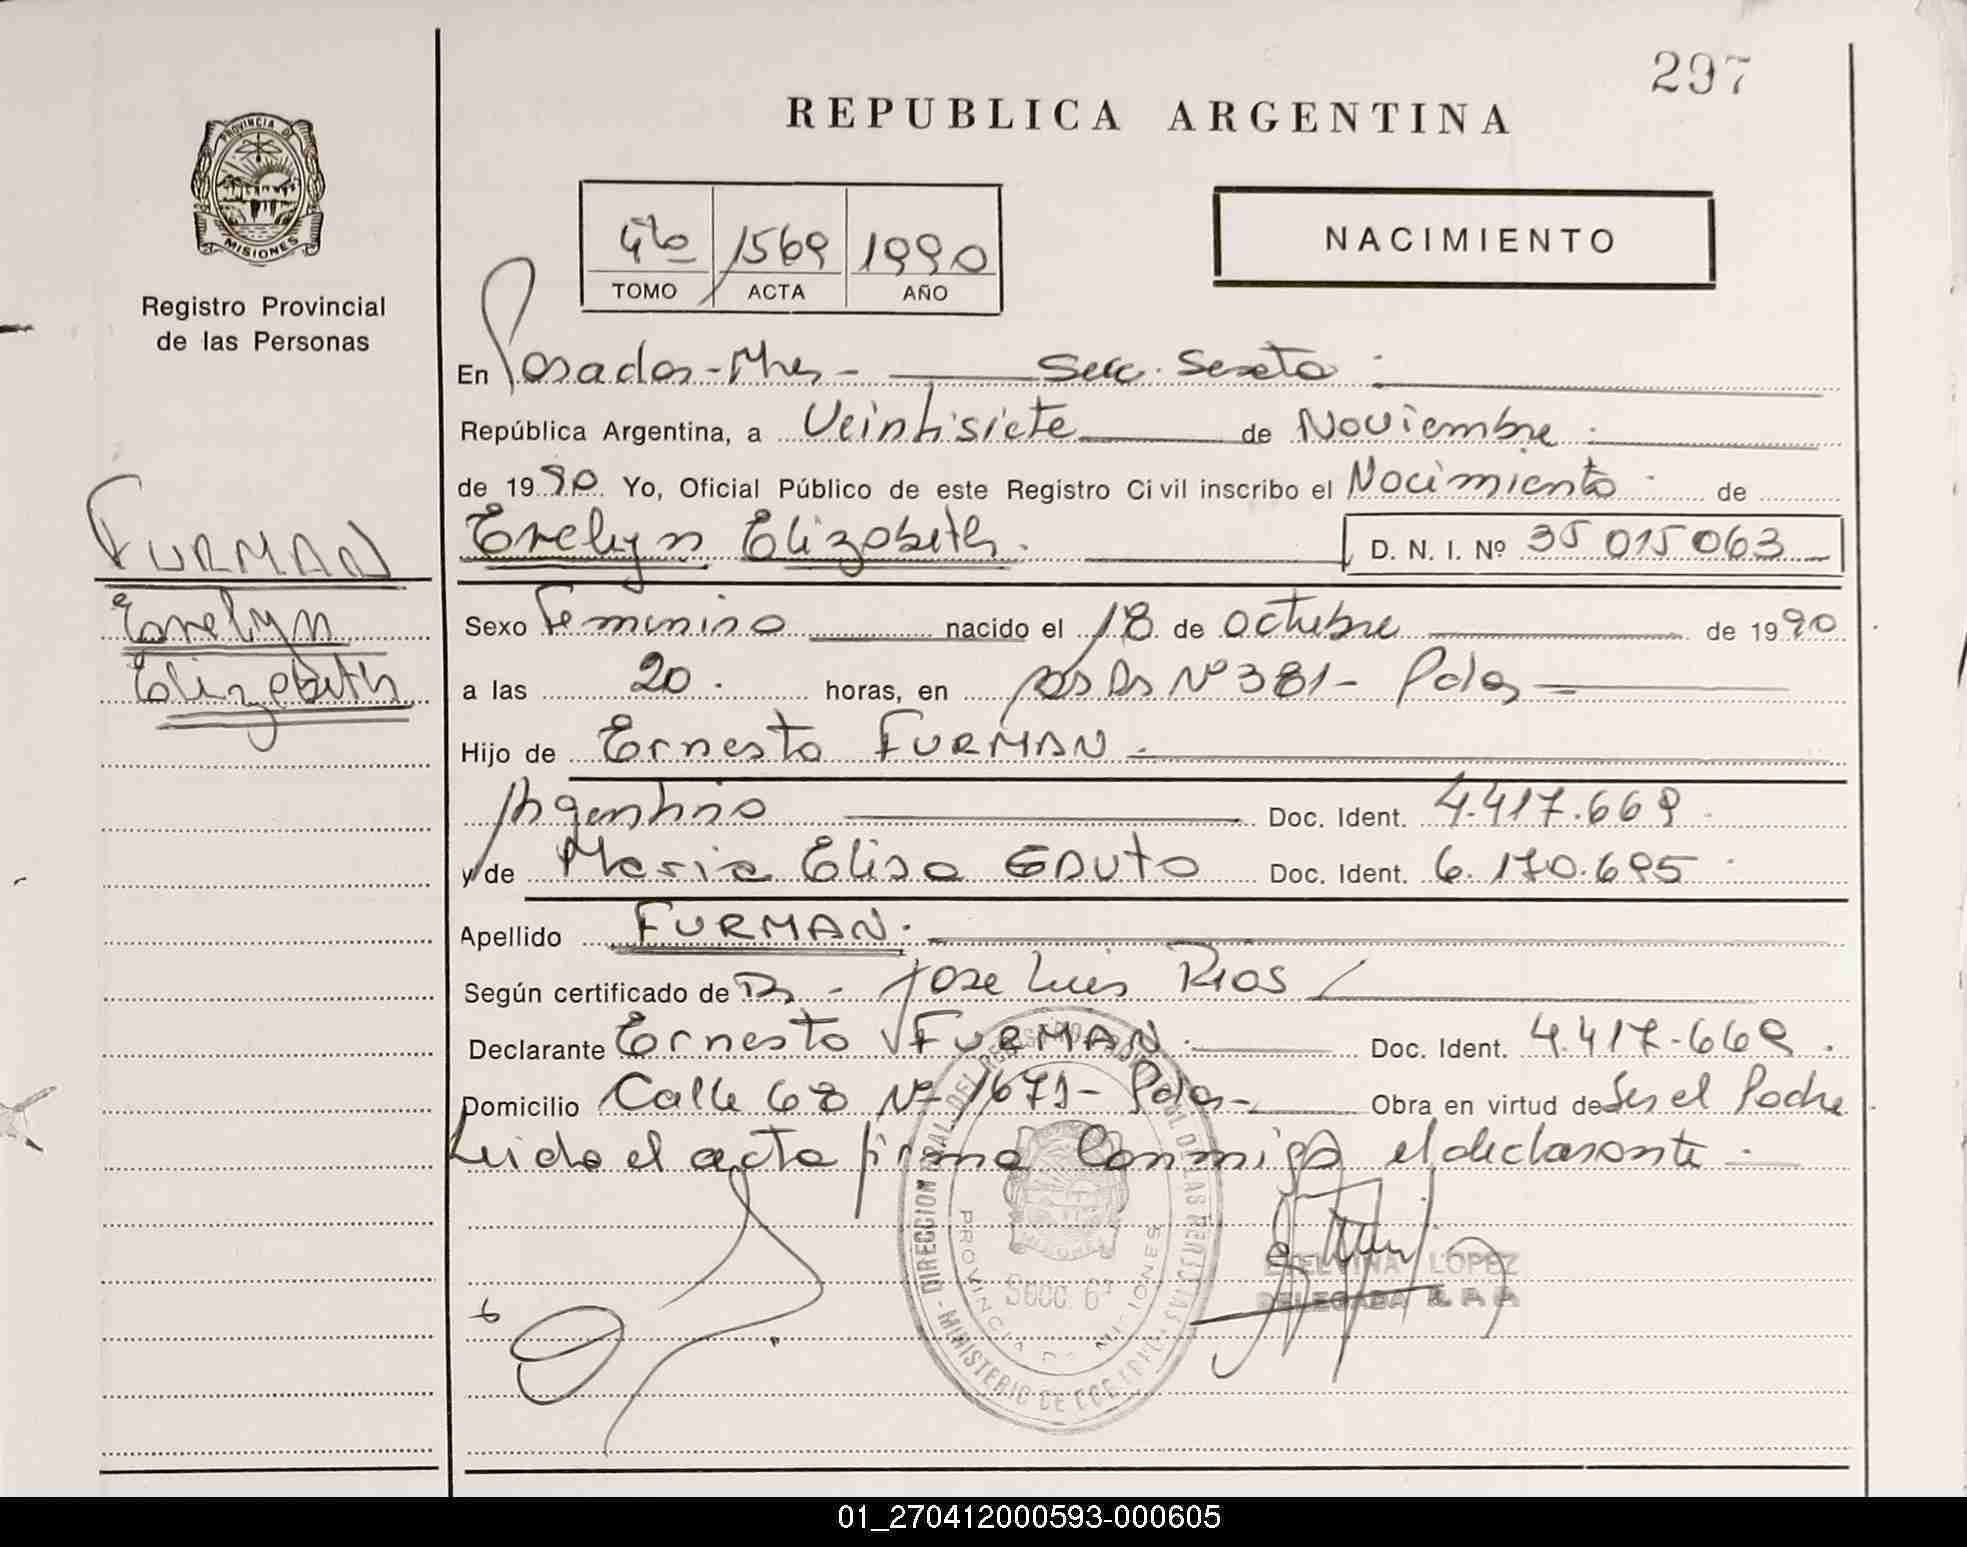 297
REPUBLICA ARGENTINA
PROVINCIA DE
MISIONES
Registro Provincial
de las Personas
4to 1569 1990
TOMO ACTA AÑO
NACIMIENTO
En Posadas-Mnes- Secc. Sexta
República Argentina, a Veintisiete de Noviembre
de 1990. Yo, Oficial Público de este Registro Civil inscribo el Nacimiento de
Evelyn Elizabeth. D. N. I. Nº 35 015 063
FURMAN
Evelyn
Elizabeth
Sexo Femenino nacido el 18 de octubre de 1990
a las 20. horas, en Nº 381- Pdas
Hijo de Ernesto FURMAN
Argentino Doc. Ident. 4.417.669
y de Maria Elisa Doc. Ident. 6.170.695
Apellido FURMAN.
Según certificado de Dr - Jose Luis Rios
Declarante Ernesto FURMAN Doc. Ident. 4.417.669.
Domicilio Calle 68 Nº 1671- Pdas- Obra en virtud de Ser el Padre
Leida el acta firma Conmigo el declarante
DIRECCION GRAL. DEL REGISTRO PROVINCIAL DE LAS PERSONAS - MINISTERIO DE
PROVINCIA DE MISIONES
Secc. 6ª
LOPEZ
DELEGADA
01_270412000593-000605